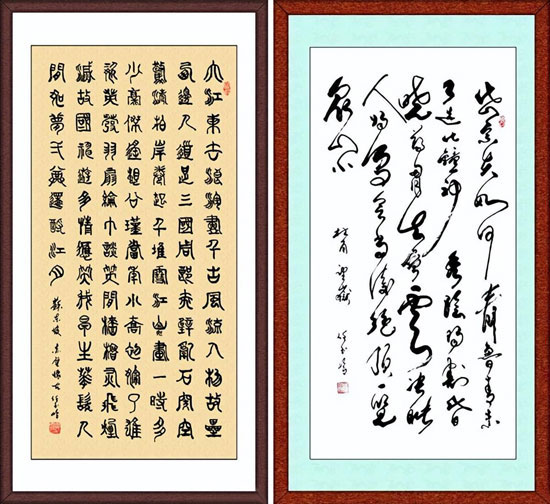 大江東去浪淘盡千古風流人物故壘
西邊人道是三國周郎赤壁亂石穿空
驚濤拍岸卷起千堆雪江山畫一時多
少豪傑遙想公瑾當年小喬初嫁了雄
姿英發羽扇綸巾談笑間檣櫓灰飛煙
滅故國神遊多情應笑我早生華髮人
間如夢一尊還酹江月
蘇東坡 赤壁懷古
岱宗夫如何齊魯青未
了造化鍾神秀陰陽割昏
曉蕩胸生層雲決眥
入歸鳥會當凌絕頂一覽
眾山小
杜甫 望嶽